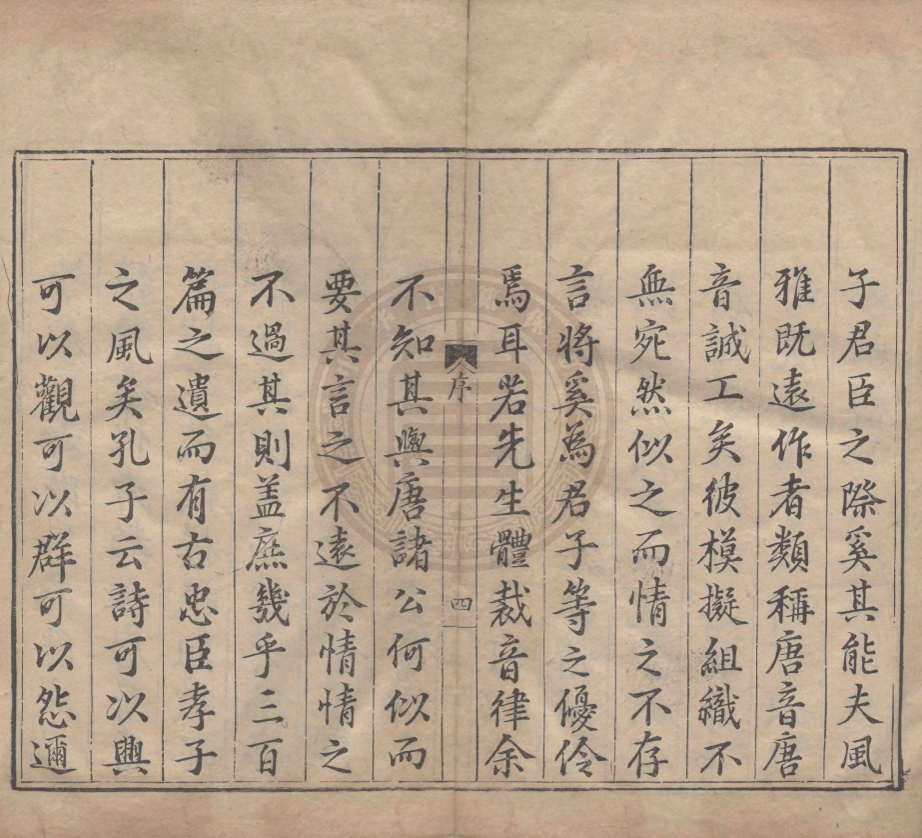 子君臣之際奚其能夫風
雅既遠作者類稱唐音唐
音誠工矣彼模擬組織不
無宛然似之而情之不存
言將奚為君子等之優伶
焉耳若先生體裁音律余
序
四
不知其與唐諸公何似而
要其言之不遠於情情之
不過其則盖庶幾乎三百
篇之遺而有古忠臣孝子
之風矣孔子云詩可以興
可以觀可以群可以怨邇